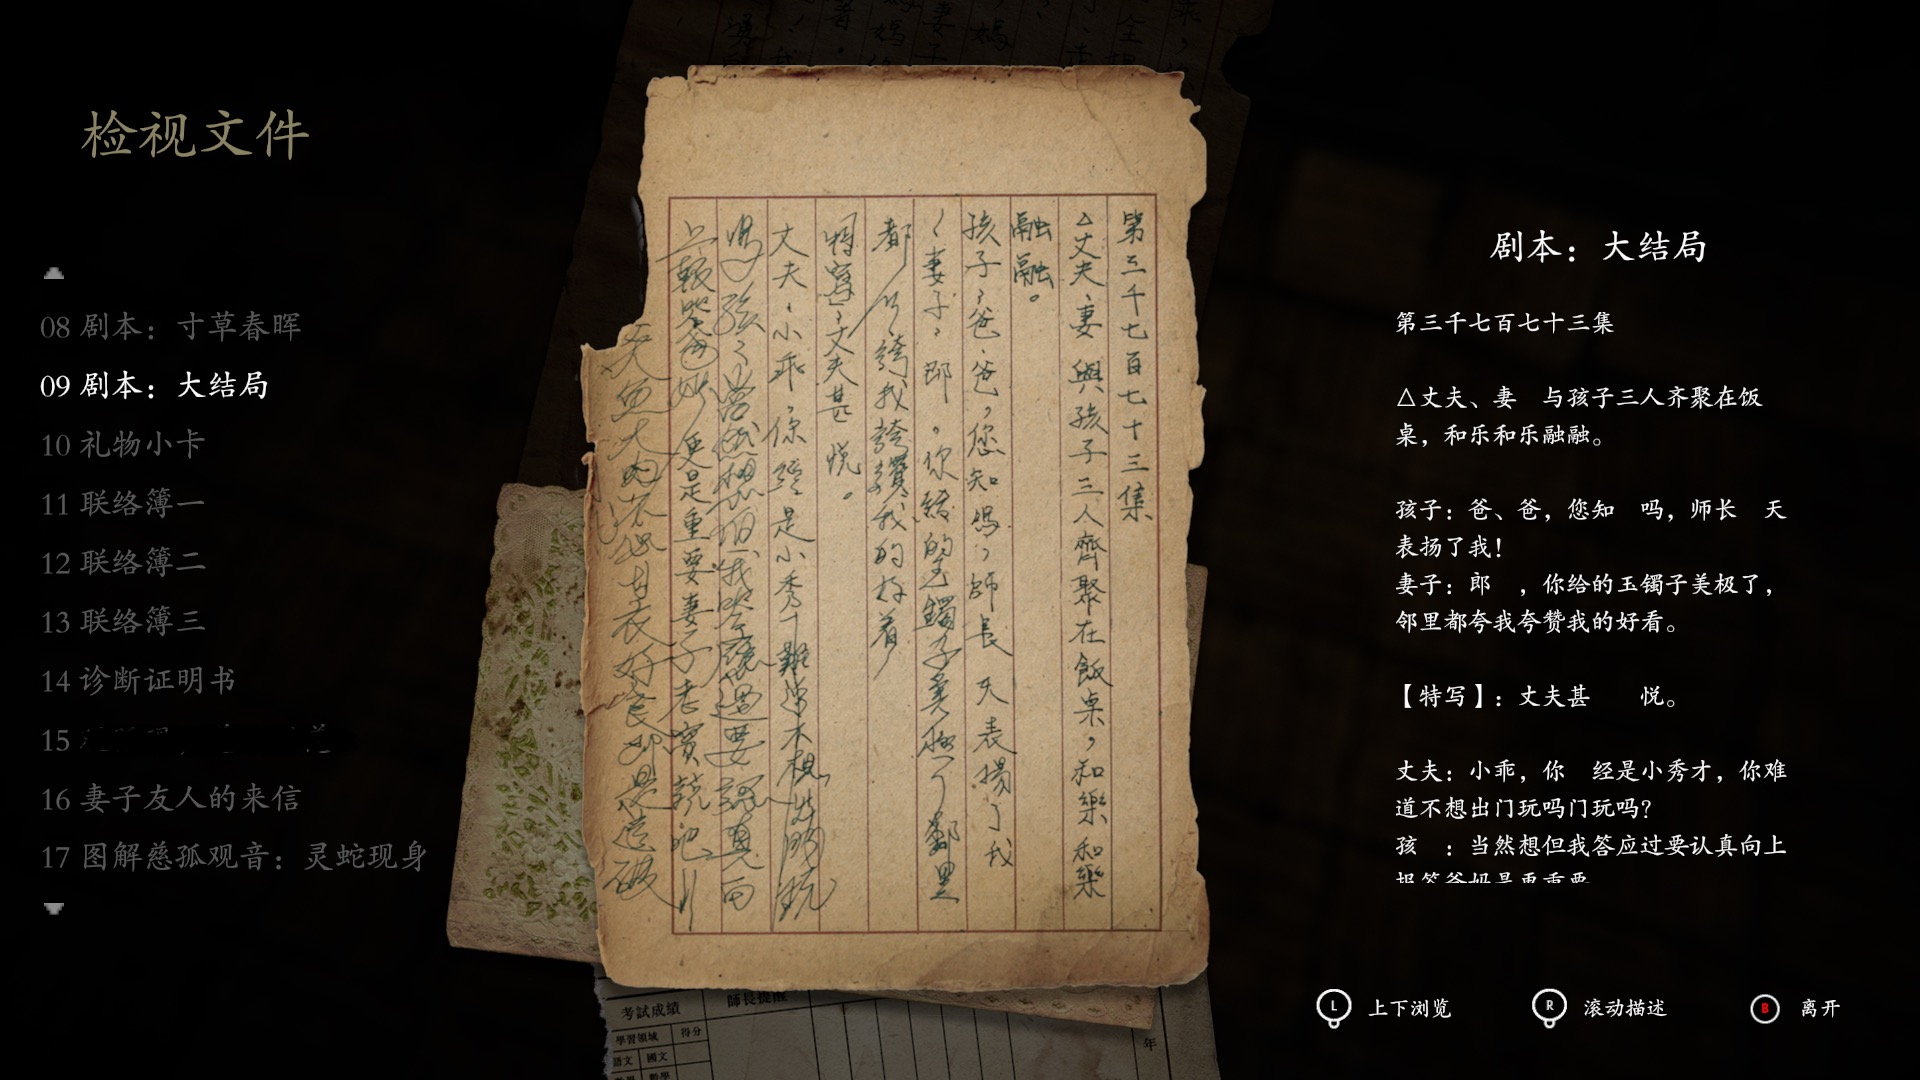 检视文件
08 剧本：寸草春晖
09 剧本：大结局
10 礼物小卡
11 联络簿一
12 联络簿二
13 联络簿三
14 诊断证明书
15
16 妻子友人的来信
17 图解慈孤观音：灵蛇现身
第三千七百七十三集
△丈夫、妻 與孩子三人齊聚在飯桌，和樂和樂
融融。
孩子：爸、爸，您知 嗎，師長 天表揚了我
！妻子：郎 。你給的玉鐲子美極了，鄰里
都 誇我誇讚我的好看
特寫：丈夫甚 悅。
丈夫：小乖，你 經是小秀才 難道不想
更是重要妻子老實說
考試成績
師長提醒
學習領域 得分
語文 國文
數學
年
剧本：大结局
第三千七百七十三集
△丈夫、妻 与孩子三人齐聚在饭
桌，和乐和乐融融。
孩子：爸、爸，您知 吗，师长 天
表扬了我！
妻子：郎 ，你给的玉镯子美极了，
邻里都夸我夸赞我的好看。
【特写】：丈夫甚 悦。
丈夫：小乖，你 经是小秀才，你难
道不想出门玩吗门玩吗？
孩 ：当然想但我答应过要认真向上
报答爸妈是更重要
L 上下浏览
R 滚动描述
B 离开